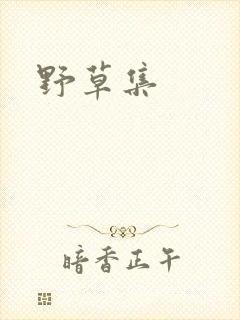 野草集
暗香正午